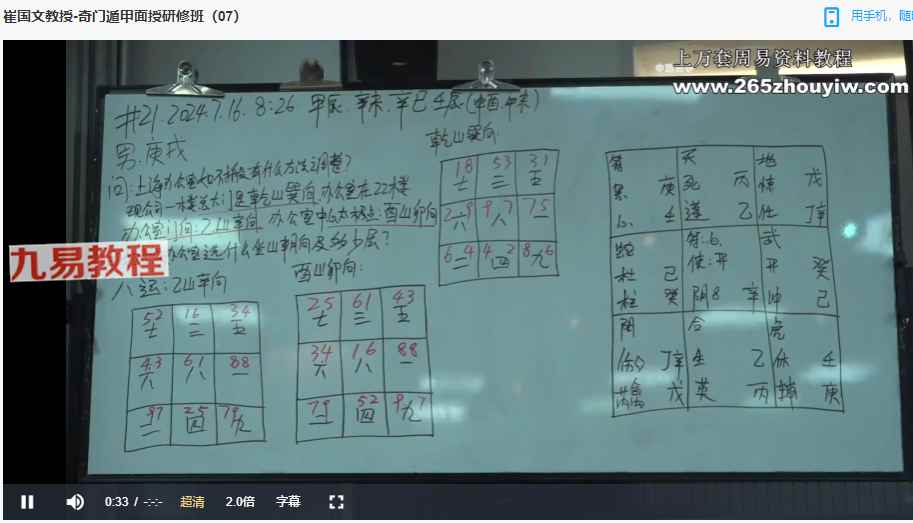 崔国文教授-奇门遁甲面授研修班（07）
用手机，随
上万套周易资料教程
www.265zhouyiw.com
#21.2024.7.16. 8:26 甲辰 辛未.辛巳 壬辰(申酉.午未)
男.庚戌
乾山巽向:
问:上海办公室
有什么方法调整?
现公司一楼大门是乾山巽向.办公室在22楼
办公室门向:乙山辛向 办公室中心太极点:酉山卯向
办公室选什么坐山朝向及多少层?
九易教程
八运:乙山辛向
酉山卯向:
18 53 31
七 三 五
29 97 75
六 八 一
64 42 86
二 四 九
52 16 34
七 三 五
43 61 88
六 八 一
97 25 79
二 四 九
25 61 43
七 三 五
34 16 88
六 八 一
79 52 97
二 四 九
符 天 地
景 庚 死 丙 惊 戊
心 壬 蓬 乙 任 丁辛
蛇 符:心 武
杜 己 使:开 开 癸
柱 癸 阴8 辛 冲 己
阴 合 虎
伤 丁辛 生 乙 休 壬
芮禽 戊 英 丙 辅 庚
0:33 / -:-:-
超清
2.0倍
字幕